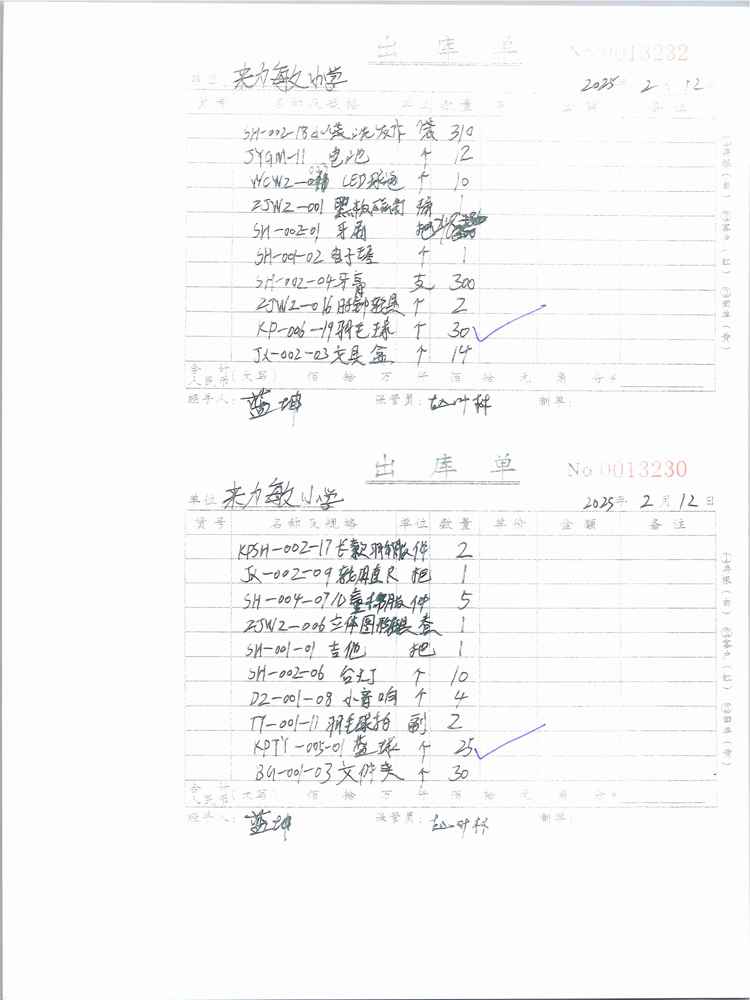 出 库 单 No 0013232
单位 来力敏小学 2025年 2月 12
货号 名称及规格 单位 数量 金额 备注
SH-002-18 小袋洗衣 袋 310
JYGM-11 电池 个 12
WCWZ- LED 个 10
ZJWZ-001
SH-002-01 牙刷 把
SH-001-02 电子 个 1
SH-002-04 牙膏 支 300
ZJWZ-016 时钟教具 个 2
KP-006-19 羽毛球 个 30
JX-002-03 文具盒 个 14
合 计
人民币(大写) 佰 拾 万 仟 佰 拾 元 角 分¥
经手人: 蓝坤 保管员: 赵叶科 制单:
①存根(白) ②客户(红) ③回单(黄)
出 库 单 No 0013230
单位 来力敏小学 2025年 2月 12日
货号 名称及规格 单位 数量 单价 金额 备注
KPSH-002-17 长款羽绒服 件 2
JX-002-09 直尺 把 1
SH-004-07 儿童棉服 件 5
ZJWZ-006 立体图形教具 套 1
SH-001-01 吉他 把 1
SH-002-06 台灯 个 10
DZ-001-08 小音响 个 4
TY-001-11 羽毛球拍 副 2
KPTY-005-01 篮球 个 25
BG-001-03 文件夹 个 30
合 计
人民币(大写) 佰 拾 万 仟 佰 拾 元 角 分¥
经手人: 蓝坤 保管员: 赵叶科 制单:
①存根(白) ②客户(红) ③回单(黄)